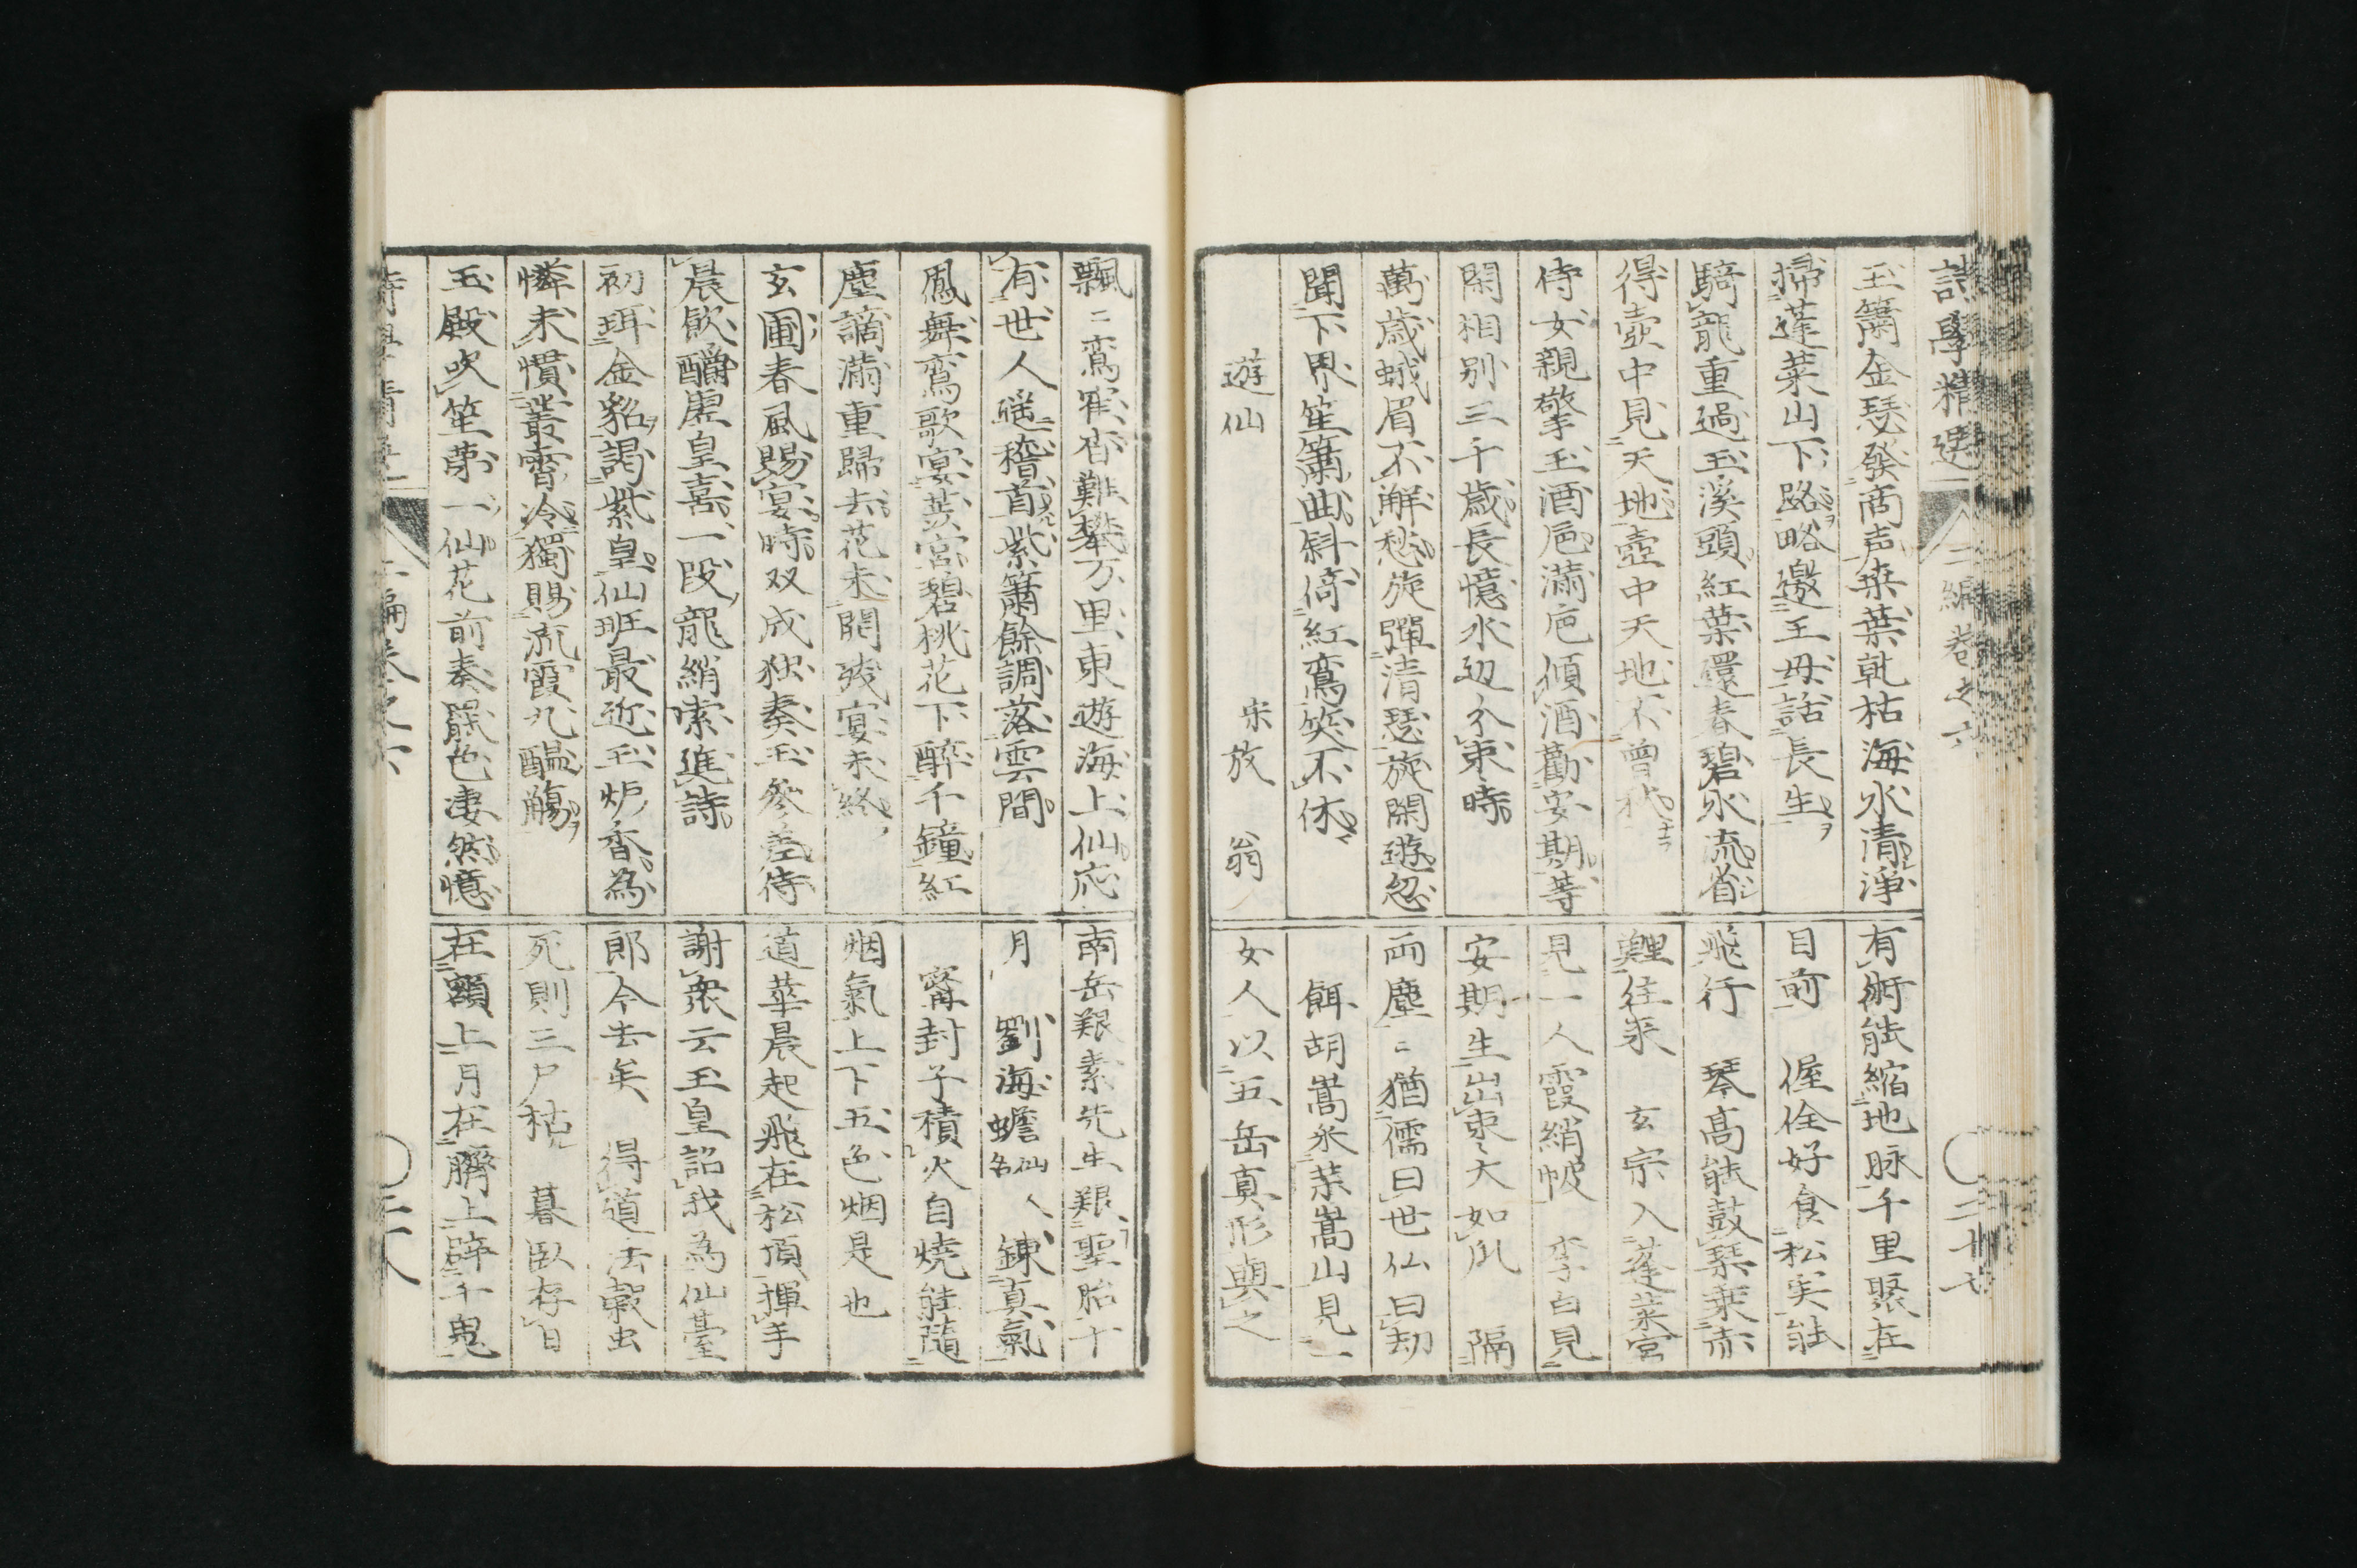 詩學精選 二編卷之六 二十七
玉簫金瑟發商声桒葉乾枯海水清淨
掃蓬萊山下路略邀王母話長生
騎龍重過玉溪頭紅葉還春碧水流省
得壺中見天地壺中天地不曾秋
侍女親擎玉酒巵滿巵傾酒勸安期等
閑相別三千歲長憶水辺分棗時
萬歲蛾眉不解愁旋彈清瑟旋閑遊忽
聞下界笙簫曲斜倚紅鸞笑不休
遊仙 宋放翁
有術能縮地脉千里聚在
目前 偓佺好食松実能
飛行 琴高能鼓琴乗赤
鯉往来 玄宗入蓬萊宮
見一人霞綃帔 李白見
安期生出棗大如瓜 隔
両塵〻猶儒曰世仏曰劫
餌胡嵩氶菜嵩山見一
女人以五岳真形與之
飄〻鸞窂杳難攀万里東遊海上仙応
有世人遥稽首紫簫餘調落雲間
鳳舞鸞歌宴蕋宮碧桃花下醉千鐘紅
塵謫滿重歸去花未開残宴未終
玄圃春風賜宴時双成独奏玉參差侍
晨飲釂虚皇喜一段龍綃索進詩
初珥金貂謁紫皇仙班最近玉炉香為
憐未慣叢霄冷獨賜流霞九醞觴
玉殿吹笙第一仙花前奏罷色凄然憶
南岳艱素先生艱聖胎十
月 劉海蟾仙名 錬真氣
甯封子積火自燒能隨
烟氣上下五色烟是也
道華晨起飛在松頂揮手
謝衆云玉皇詔我為仙臺
郎今去矣 得道去穀虫
死則三尸枯 暮臥存日
在額上月在臍上辟千鬼
二編卷之六 二十八